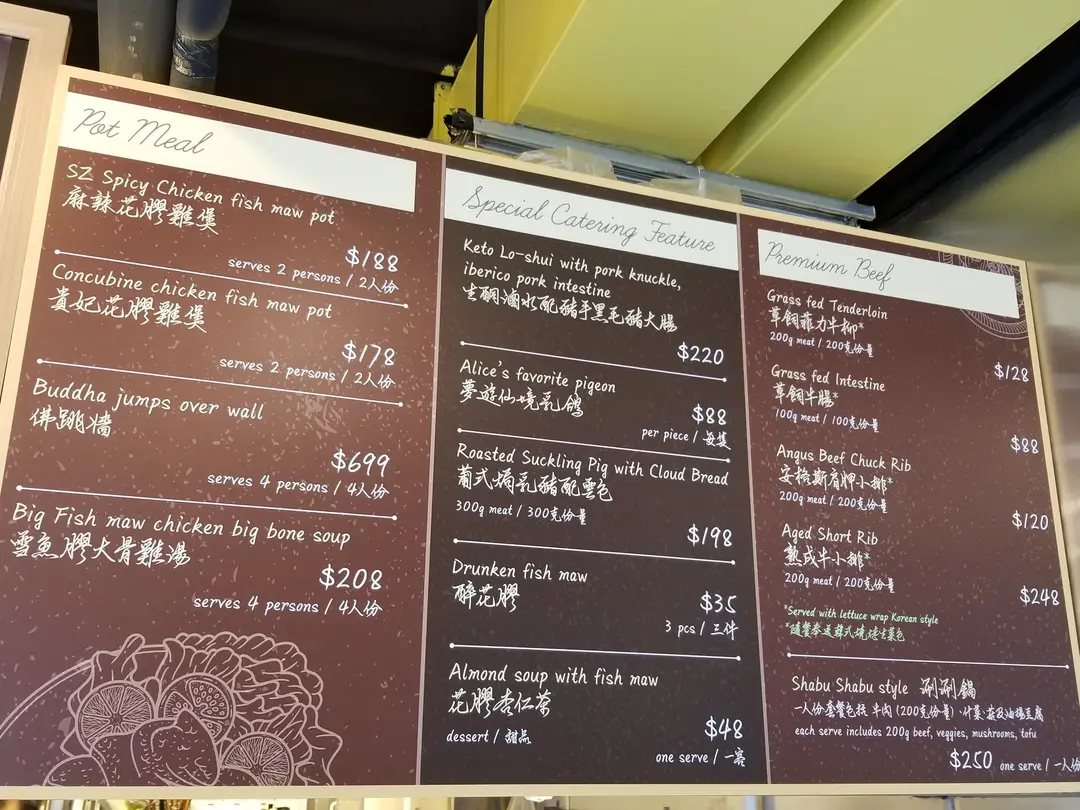 Pot Meal
SZ Spicy Chicken fish maw pot
麻辣花膠雞煲
$188
serves 2 persons / 2人份
Concubine chicken fish maw pot
貴妃花膠雞煲
$178
serves 2 persons / 2人份
Buddha jumps over wall
佛跳牆
$699
serves 4 persons / 4人份
Big Fish maw chicken big bone soup
雪魚膠大骨雞湯
$208
serves 4 persons / 4人份
Special Catering Feature
Keto Lo-shui with pork knuckle,
iberico pork intestine
生酮滷水配豬手黑毛豬大腸
$220
Alice's favorite pigeon
夢遊仙境乳鴿
$88
per piece / 每隻
Roasted Suckling Pig with Cloud Bread
葡式焗乳豬配雲包
300g meat / 300克份量
$198
Drunken fish maw
醉花膠
$35
3 pcs / 三件
Almond soup with fish maw
花膠杏仁茶
$48
dessert / 甜品
one serve / 一客
Premium Beef
Grass fed Tenderloin
草飼菲力牛柳*
200g meat / 200克份量
$128
Grass fed Intestine
草飼牛腸*
100g meat / 100克份量
$88
Angus Beef Chuck Rib
安格斯肩胛小排*
200g meat / 200克份量
$120
Aged Short Rib
熟成牛小排*
200g meat / 200克份量
$248
*Served with lettuce wrap Korean style
*隨餐奉送韓式燒烤生菜包
Shabu Shabu style 涮涮鍋
一人份套餐包括 牛肉 (200克份量)·什菜·菇及油揚豆腐
each serve includes 200g beef, veggies, mushrooms, tofu
$250 one serve / 一人份